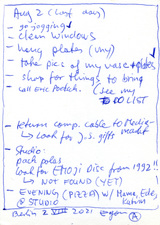 Aug 2 (last day)
- go jogging
- clean windows
- hang plates (vhy)
- take pics of my vase + plates
- shop for things to bring
- call Eric Portch. (see my
TO DO LIST
- return comp. cable to Media-
Look for J.S. gifts markt
- Studio:
pack polas
look for EMOJI Disc from 1992!!
NOT FOUND (YET)
- EVENING (PIZZA) w/ Hume, Ede,
@ STUDIO
Berlin 2 VIII 2021